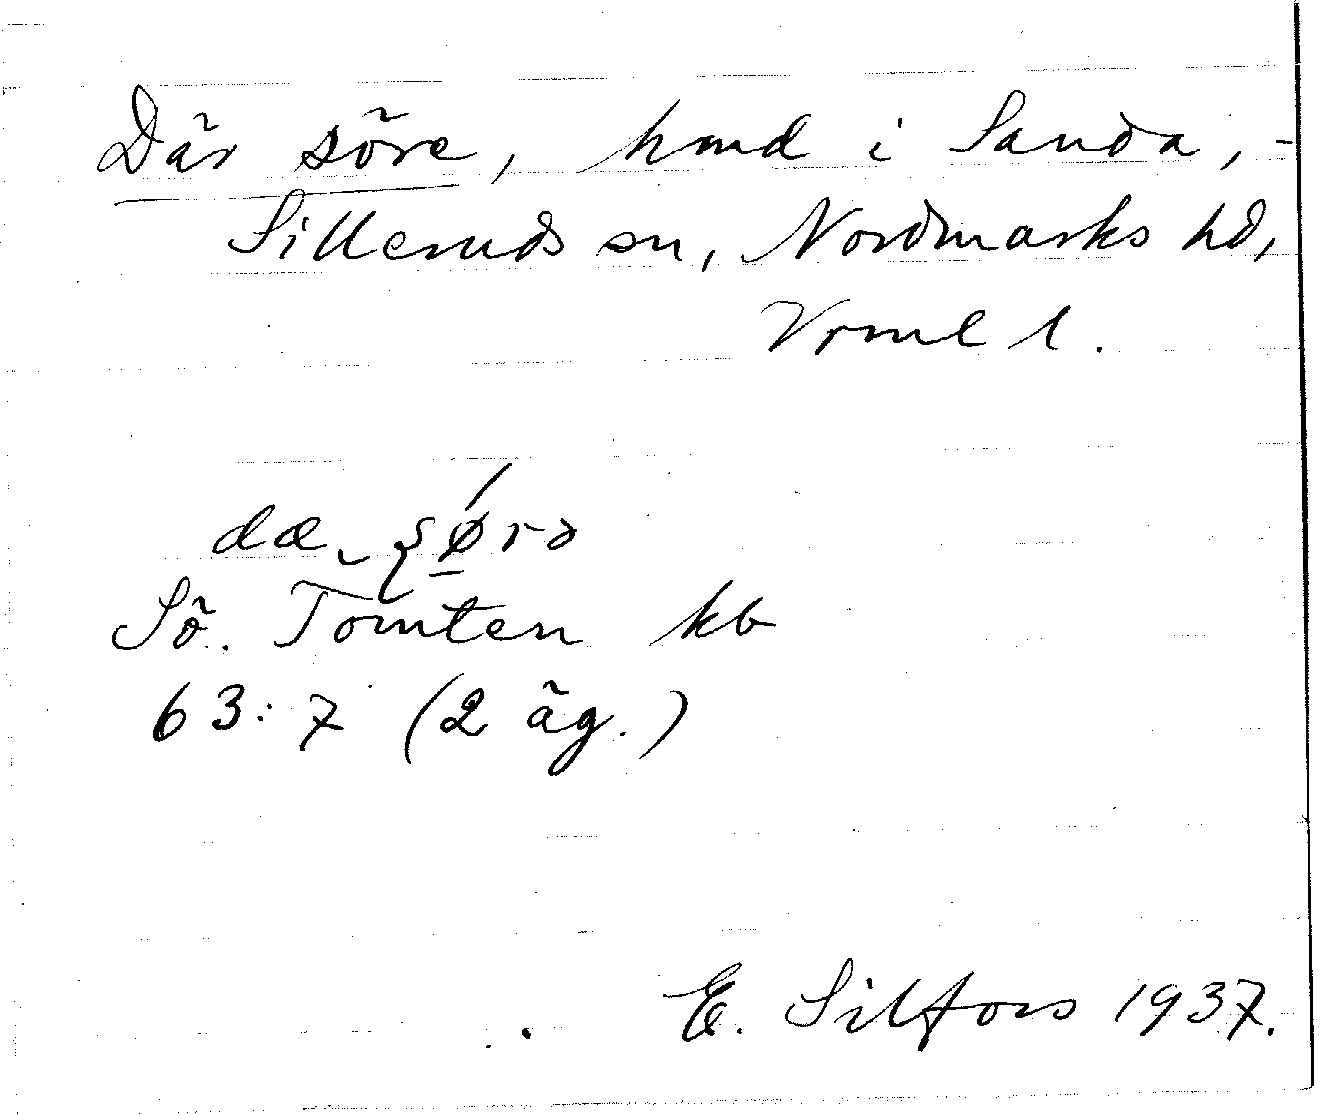 Där söre, hmd i Sanda, -
Silleruds sn, Nordmarks hd,
Vrml l.
dæ ʂǿ̱rə
Sö. Tomten kb
63:7 (2 äg.)
E. Silfors 1937.